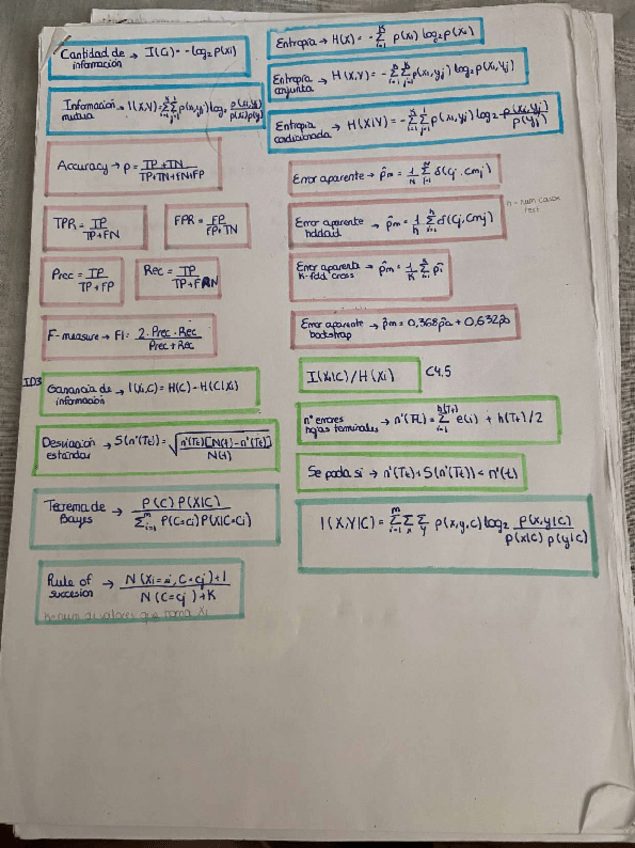 Cantidad de información → I(Ci) = -log₂ p(xi)
Entropía → H(X) = -∑ᵢ₌₁ⁿ p(xi) log₂ p(xi)
Entropía conjunta → H(X,Y) = -∑ᵢ₌₁ⁿ ∑ⱼ₌₁ᵐ p(xi,yj) log₂ p(xi,yj)
Información mutua → I(X,Y) = ∑ᵢ₌₁ ∑ⱼ₌₁ p(xi,yj) log₂ p(xi,yj) / p(xi)p(yj)
Entropía condicionada → H(X|Y) = -∑ᵢ₌₁ ∑ⱼ₌₁ p(xi,yj) log₂ p(xi,yj) / p(yj)
Accuracy → p = TP+TN / TP+TN+FN+FP
Error aparente → p̂m = 1/N ∑ᵢ₌₁ᴺ δ(Cj, Cmj)
TPR = TP / TP+FN
FPR = FP / FP+TN
Error aparente holdout → p̂m = 1/h ∑ᵢ₌₁ʰ δ(Cj, Cmj)
n = num casos test
Prec = TP / TP+FP
Rec = TP / TP+FN
Error aparente k-fold cross → p̂m = 1/K ∑ᵢ₌₁ p̂i
F-measure → F1 = 2·Prec·Rec / Prec+Rec
Error aparente bootstrap → p̂m = 0,368p̂a + 0,632p̂o
ID3
Ganancia de información → I(Xi,C) = H(C) - H(C|Xi)
I(Xi,C)/H(Xi) C4.5
nº errores hojas terminales → n'(Tt) = ∑ᵢ₌₁ʰ⁽ᵀᵗ⁾ e(i) + h(Tt)/2
Desviación estándar → S(n'(Tt)) = √ n'(Tt)[N(t) - n'(Tt)] / N(t)
Se poda si → n'(Tt) + S(n'(Tt)) < n'(t)
Teorema de Bayes → P(C) P(X|C) / ∑ᵢ₌₁ᵐ P(C=Ci) P(X|C=Ci)
I(X,Y|C) = ∑ᵢ₌₁ᵐ ∑ₓ ∑ᵧ p(x,y,c) log₂ p(x,y|c) / p(x|c) p(y|c)
Rule of succesion → N(Xi=xi, C=cj)+1 / N(C=cj)+K
K=num de valores que toma Xi